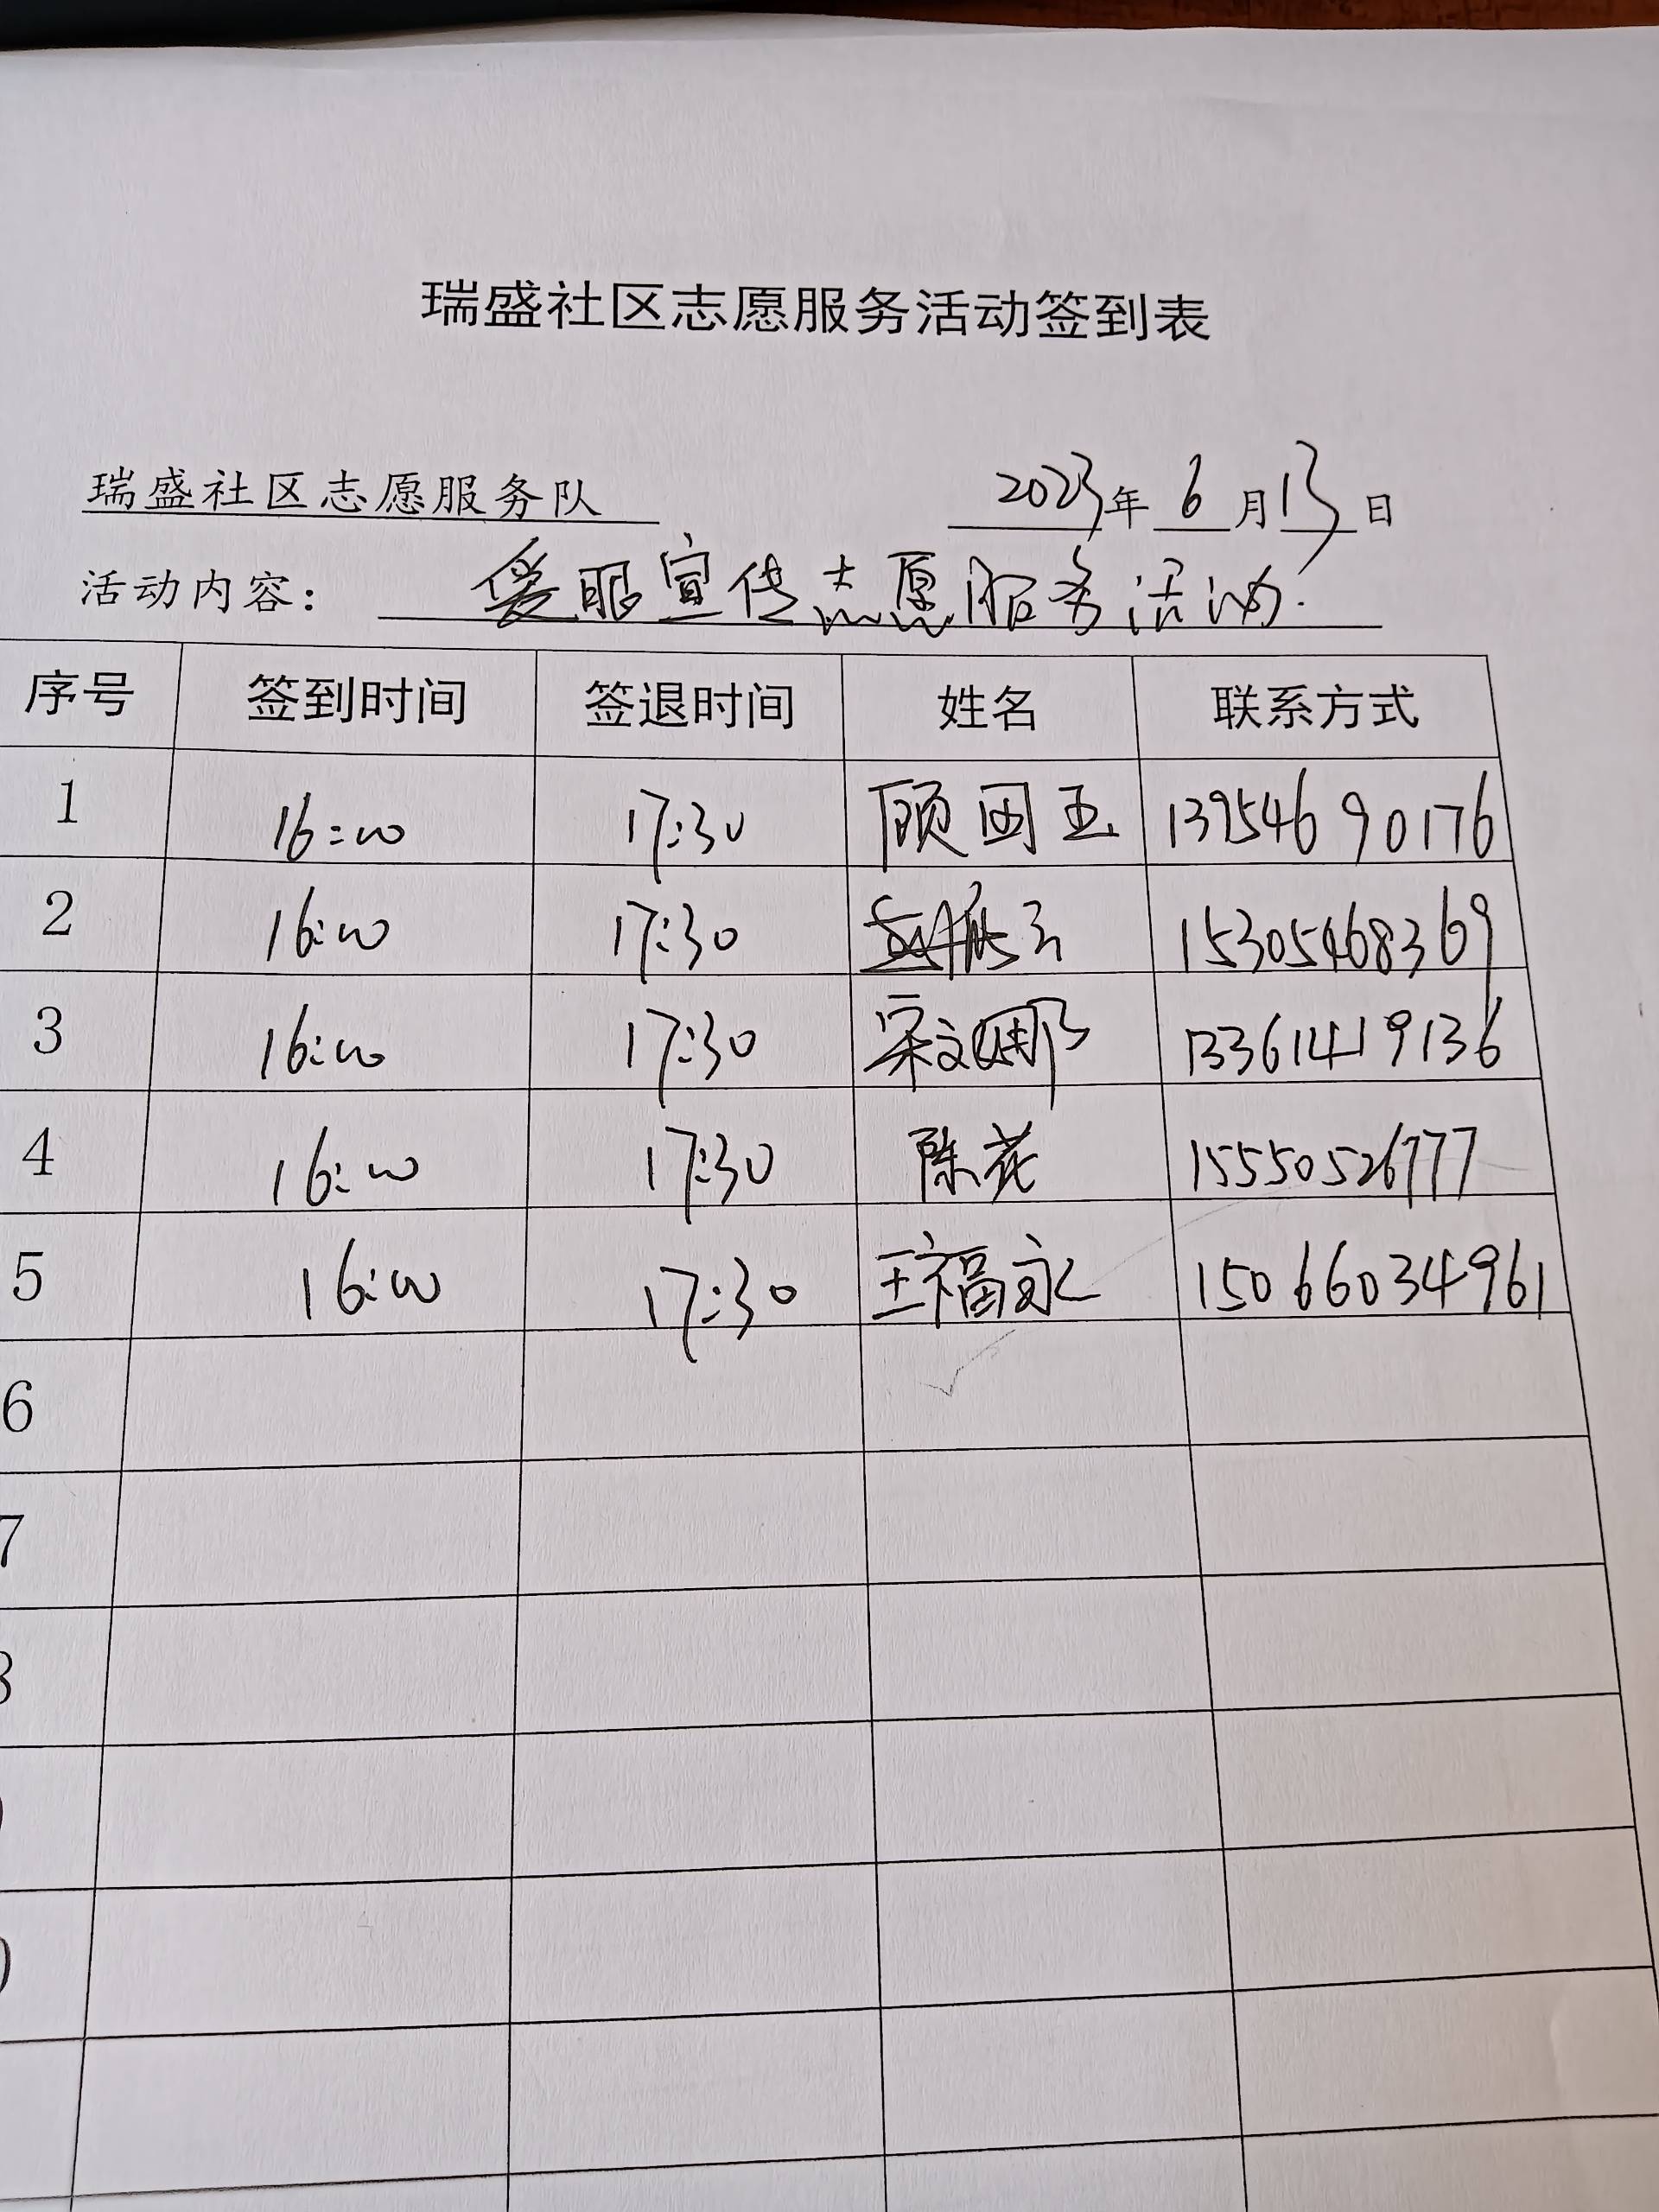 瑞盛社区志愿服务活动签到表
瑞盛社区志愿服务队 2023年 6 月 13 日
活动内容： 爱眼宣传志愿服务活动.
序号 签到时间 签退时间 姓名 联系方式
1 16:00 17:30 顾国玉 13954690176
2 16:00 17:30 15305468369
3 16:00 17:30 宋文娜 13361419136
4 16:00 17:30 陈花 15550526777
5 16:00 17:30 王福永 15066034961
6
7